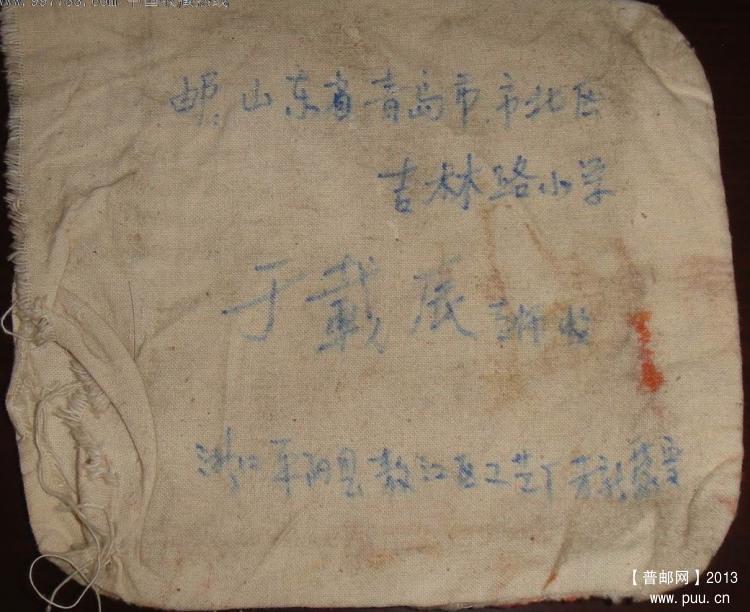 www.997788.com 中国收藏热线
邮: 山东省青岛市市北区
吉林路小学
于载辰 老师收
浙江平阳县敖江区工艺厂
【普邮网】2013
www.puu.cn